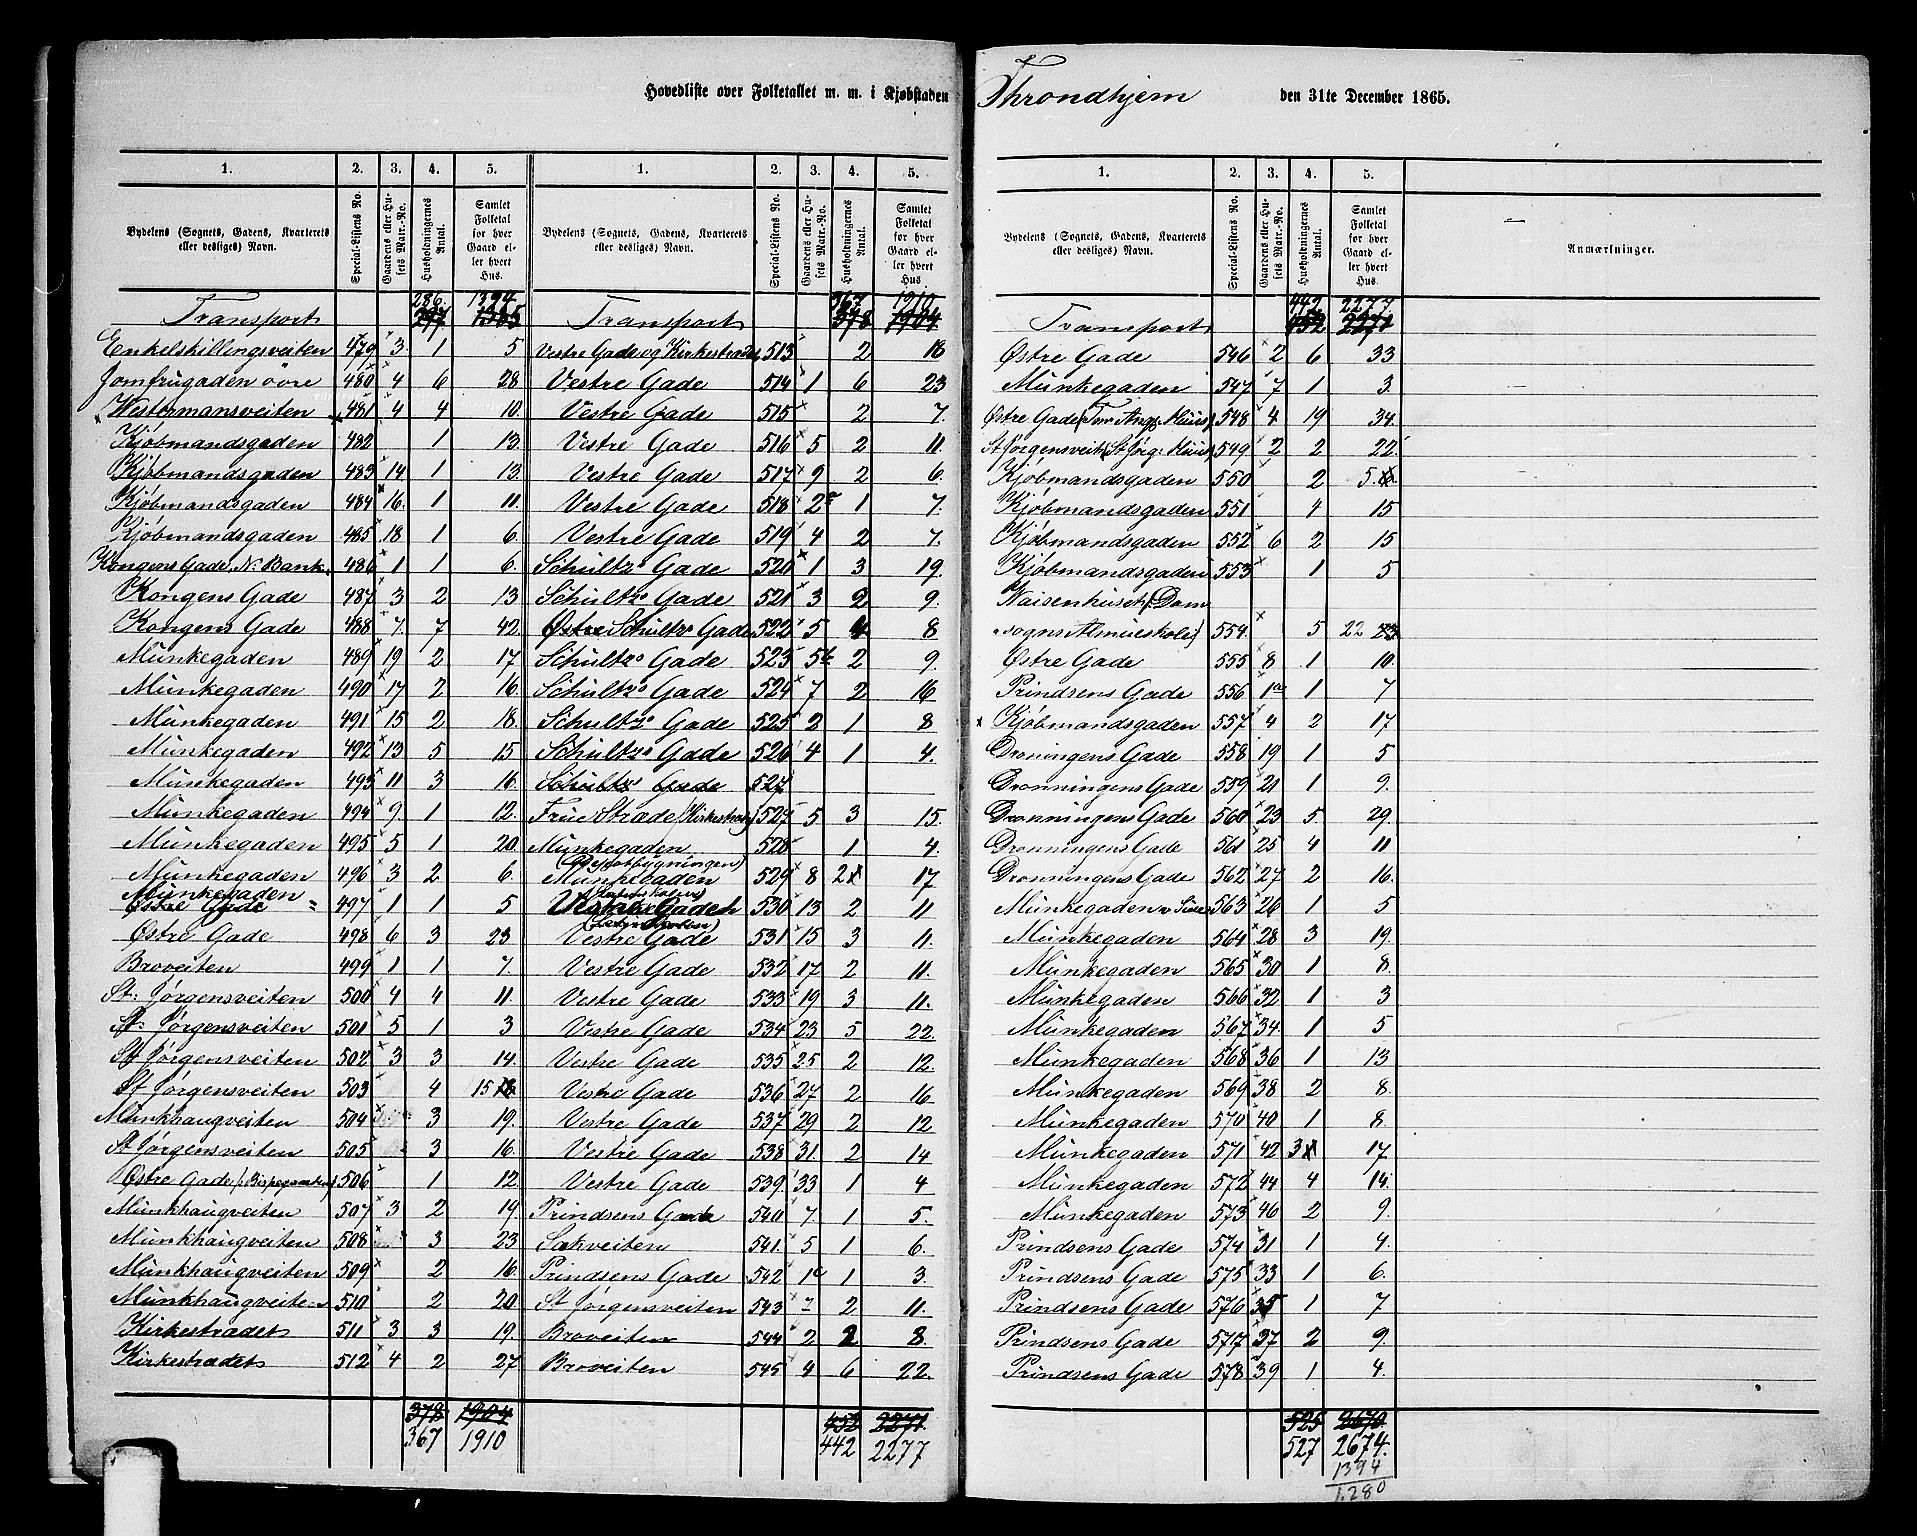 Hovedliste over Folketallet m. m. i Kjøbstaden Throndhjem den 31te December 1865.
1. 2. 3. 4. 5. 1. 2. 3. 4. 5.
Bydelens (Sognets, Gadens, Kvarterets eller desliges) Navn. Special-Listens No. Gaardens eller Husets Matr.-No. Husholdningernes Antal. Samlet Folketal for hver Gaard eller hvert Hus. Bydelens (Sognets, Gadens, Kvarterets eller desliges) Navn. Special-Listens No. Gaardens eller Husets Matr.-No. Husholdningernes Antal. Samlet Folketal for hver Gaard eller hvert Hus
286. 1394 367 1910
Transport 297 1385 Transport 378 1904
Enkelskillingsveiten 479 3 1 5 Vestre Gade og Kirkestrædet 513 2 18
Jomfrugaden övre 480 4 6 28 Vestre Gade 514 1 6 23
Westermansveiten 481 4 4 10. Vestre Gade 515 2 7.
Kjøbmandsgaden 482 1 13. Vestre Gade 516 5 2 11.
Kjøbmandsgaden 483 14 1 13. Vestre Gade 517 9 2 6.
Kjøbmandsgaden 484 16. 1 11. Vestre Gade 518 2 1 7.
Kjøbmandsgaden 485 18 1 6. Vestre Gade 519 4 2 7.
Kongens Gade, N. Bank. 486 1 1 6. Schultz's Gade 520 1 3 19.
Kongens Gade 487 3 2 13 Schultz's Gade 521 3 2 9.
Kongens Gade 488 7. 7 42. Østre Schultz's Gade 522 5 4 8
Munkegaden 489 19 2 17 Schultz's Gade 523 5b 2 9.
Munkegaden 490 17 2 16. Schultz's Gade 524 7 2 16
Munkegaden 491 15 2 18. Schultz's Gade 525 2 1 8
Munkegaden 492 13 5 15 Schultz's Gade 526 4 1 4.
Munkegaden 493 11 3 16. Schultz's Gade 527
Munkegaden 494 9 1 12. Frue Stræde (Kirkestræd) 527 5 3 15.
Munkegaden 495 5 1 20. Munkegaden 528 1 4.
Munkegaden 496 3 2 6. (Depotbygningen) Munkegaden 529 8 2 17
Munkegaden Østre Gade 497 1 1 5 Vestre Gaden 530 13 2 11
Østre Gade 498 6 3 23 Vestre Gade 531 15 3 11.
Broveiten 499 1 1 7. Vestre Gade 532 17 2 11.
St: Jørgensveiten 500 4 4 11. Vestre Gade 533 19 3 11.
St: Jørgensveiten 501 5 1 3 Vestre Gade 534 23 5 22.
St Jørgensveiten 502 3 3 14. Vestre Gade 535 25 2 12.
St Jørgensveiten 503 4 15 18 Vestre Gade 536 27 2 16
Munkhaugveiten 504 3 19. Vestre Gade 537 29 2 12
St Jørgensveiten 505 3 16. Vestre Gade 538 31. 2 14
Østre Gade (Bispegaarden) 506 1 12. Vestre Gade 539 33 1 4
Munkhaugveiten 507 3 2 19. Prindsens Gade 540 7 1 5.
Munkhaugveiten 508 3 23 Sakveiten 541. 5 1 6.
Munkhaugveiten 509 2 16. Prindsens Gade 542 1c 1 3.
Munkhaugveiten 510 2 20. St Jørgensveiten 543 2 11.
Kirkestrædets 511 3 3 19. Broveiten 544 2 2 8.
Kirkestrædets 512 4 2 27 Broveiten 545 4 6 22.
378 1904 452 2271.
367 1910 442 2277
1. 2. 3. 4. 5.
Bydelens (Sognets, Gadens, Kvarterets eller desliges) Navn. Special-Listens No. Gaardens eller Husets Matr.-No. Husholdningernes Antal. Samlet Folketal for hver Gaard eller hvert Hus. Anmærkninger.
442 2277
Transport 452 2271
Østre Gade 546 2 6 33
Munkegaden 547 7 1 3.
Østre Gade (Tvr Ang. Huus) 548 4 19 34.
St Jørgensveit (St Jørg: Huus) 549 2 2 22.
Kjøbmandsgaden 550 2 5.
Kjøbmandsgaden 551 4 15
Kjøbmandsgaden 552 6 2 15
Kjøbmandsgaden 553 1 5
Waisenhuset (Dom
sogns Almueskole) 554. 5 22 23
Østre Gade 555 8 1 10.
Prindsens Gade 556 1a 1 7
Kjøbmandsgaden 557 4 2 17
Dronningens Gade 558 19 1 5
Dronningens Gade 559 21 1 9.
Dronningens Gade 560 23 5 29.
Dronningens Gade 561 25 4 11
Dronningens Gade 562 27 2 16.
Munkegaden 563 26 1 5
Munkegaden 564 28 3 19.
Munkegaden 565 30 1 8.
Munkegaden 566 32 1 3
Munkegaden 567 34. 1 5
Munkegaden 568 36 1 13
Munkegaden 569 38 2 8.
Munkegaden 570 40 1 8.
Munkegaden 571 42 3 17
Munkegaden 572 44 4 14.
Munkegaden 573 46 2 9.
Prindsens Gade 574 31 1 4.
Prindsens Gade 575 33 1 6.
Prindsens Gade 576 35 1 7
Prindsens Gade 577 37 2 9.
Prindsens Gade 578 39 1 4.
525 2670
527 2674.
1394
1.280